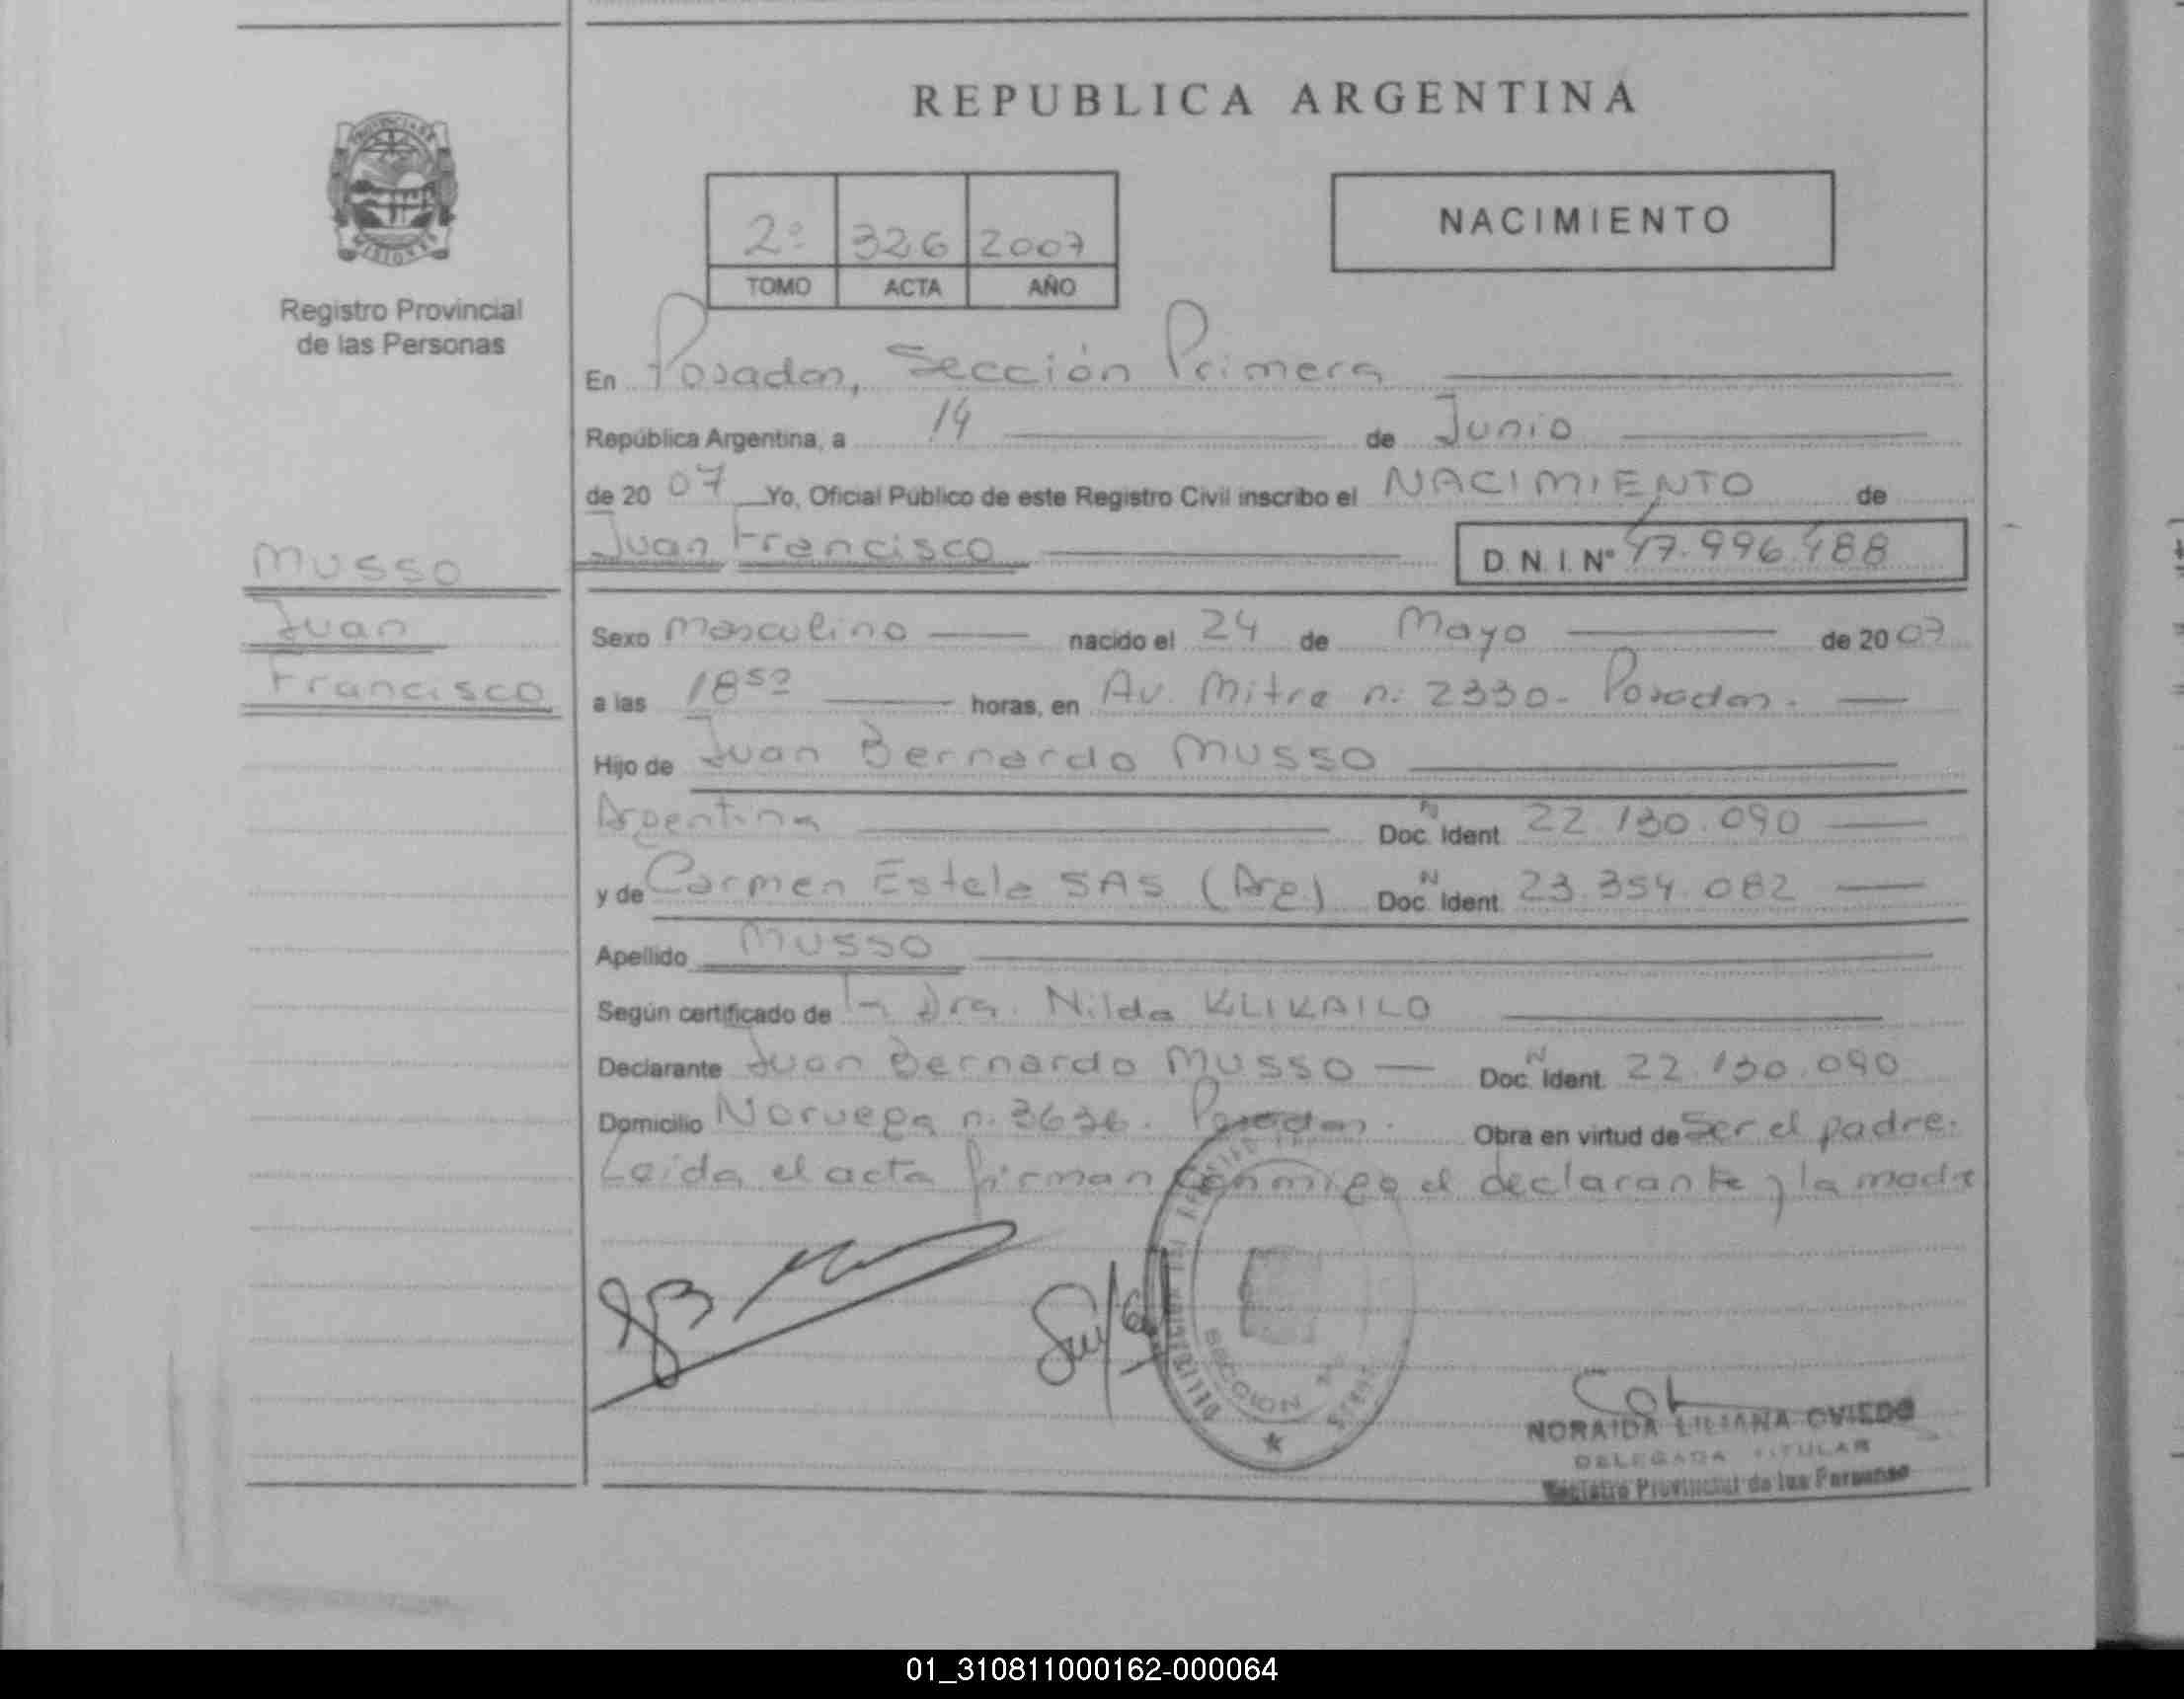 REPUBLICA ARGENTINA
PROVINCIA DE
MISIONES
Registro Provincial
de las Personas
2º 326 2007
TOMO ACTA AÑO
NACIMIENTO
En Posadas, Sección Primera
República Argentina, a 14 de Junio
de 20 07 Yo, Oficial Público de este Registro Civil inscribo el NACIMIENTO de
Juan Francisco D. N. I. Nº 47.996.488
MUSSO
Juan
Francisco
Sexo Masculino nacido el 24 de Mayo de 20 07
a las 18 52 horas, en Av. Mitre n. 2330- Posadas.
Hijo de Juan Bernardo MUSSO
Argentina Doc. N Ident. 22.130.090
y de Carmen Estela SAS (Arg.) Doc. N Ident. 23.354.082
Apellido MUSSO
Según certificado de la Dra. Nilda KLIKAILO
Declarante Juan Bernardo MUSSO Doc. N Ident. 22.130.090
Domicilio Noruega n. 3636. Posadas. Obra en virtud de Ser el padre.
Leída el acta firman conmigo el declarante y la madre
SECCION
NORAIDA LILIANA OVIEDO
DELEGADA TITULAR
Registro Provincial de las Personas
01_310811000162-000064